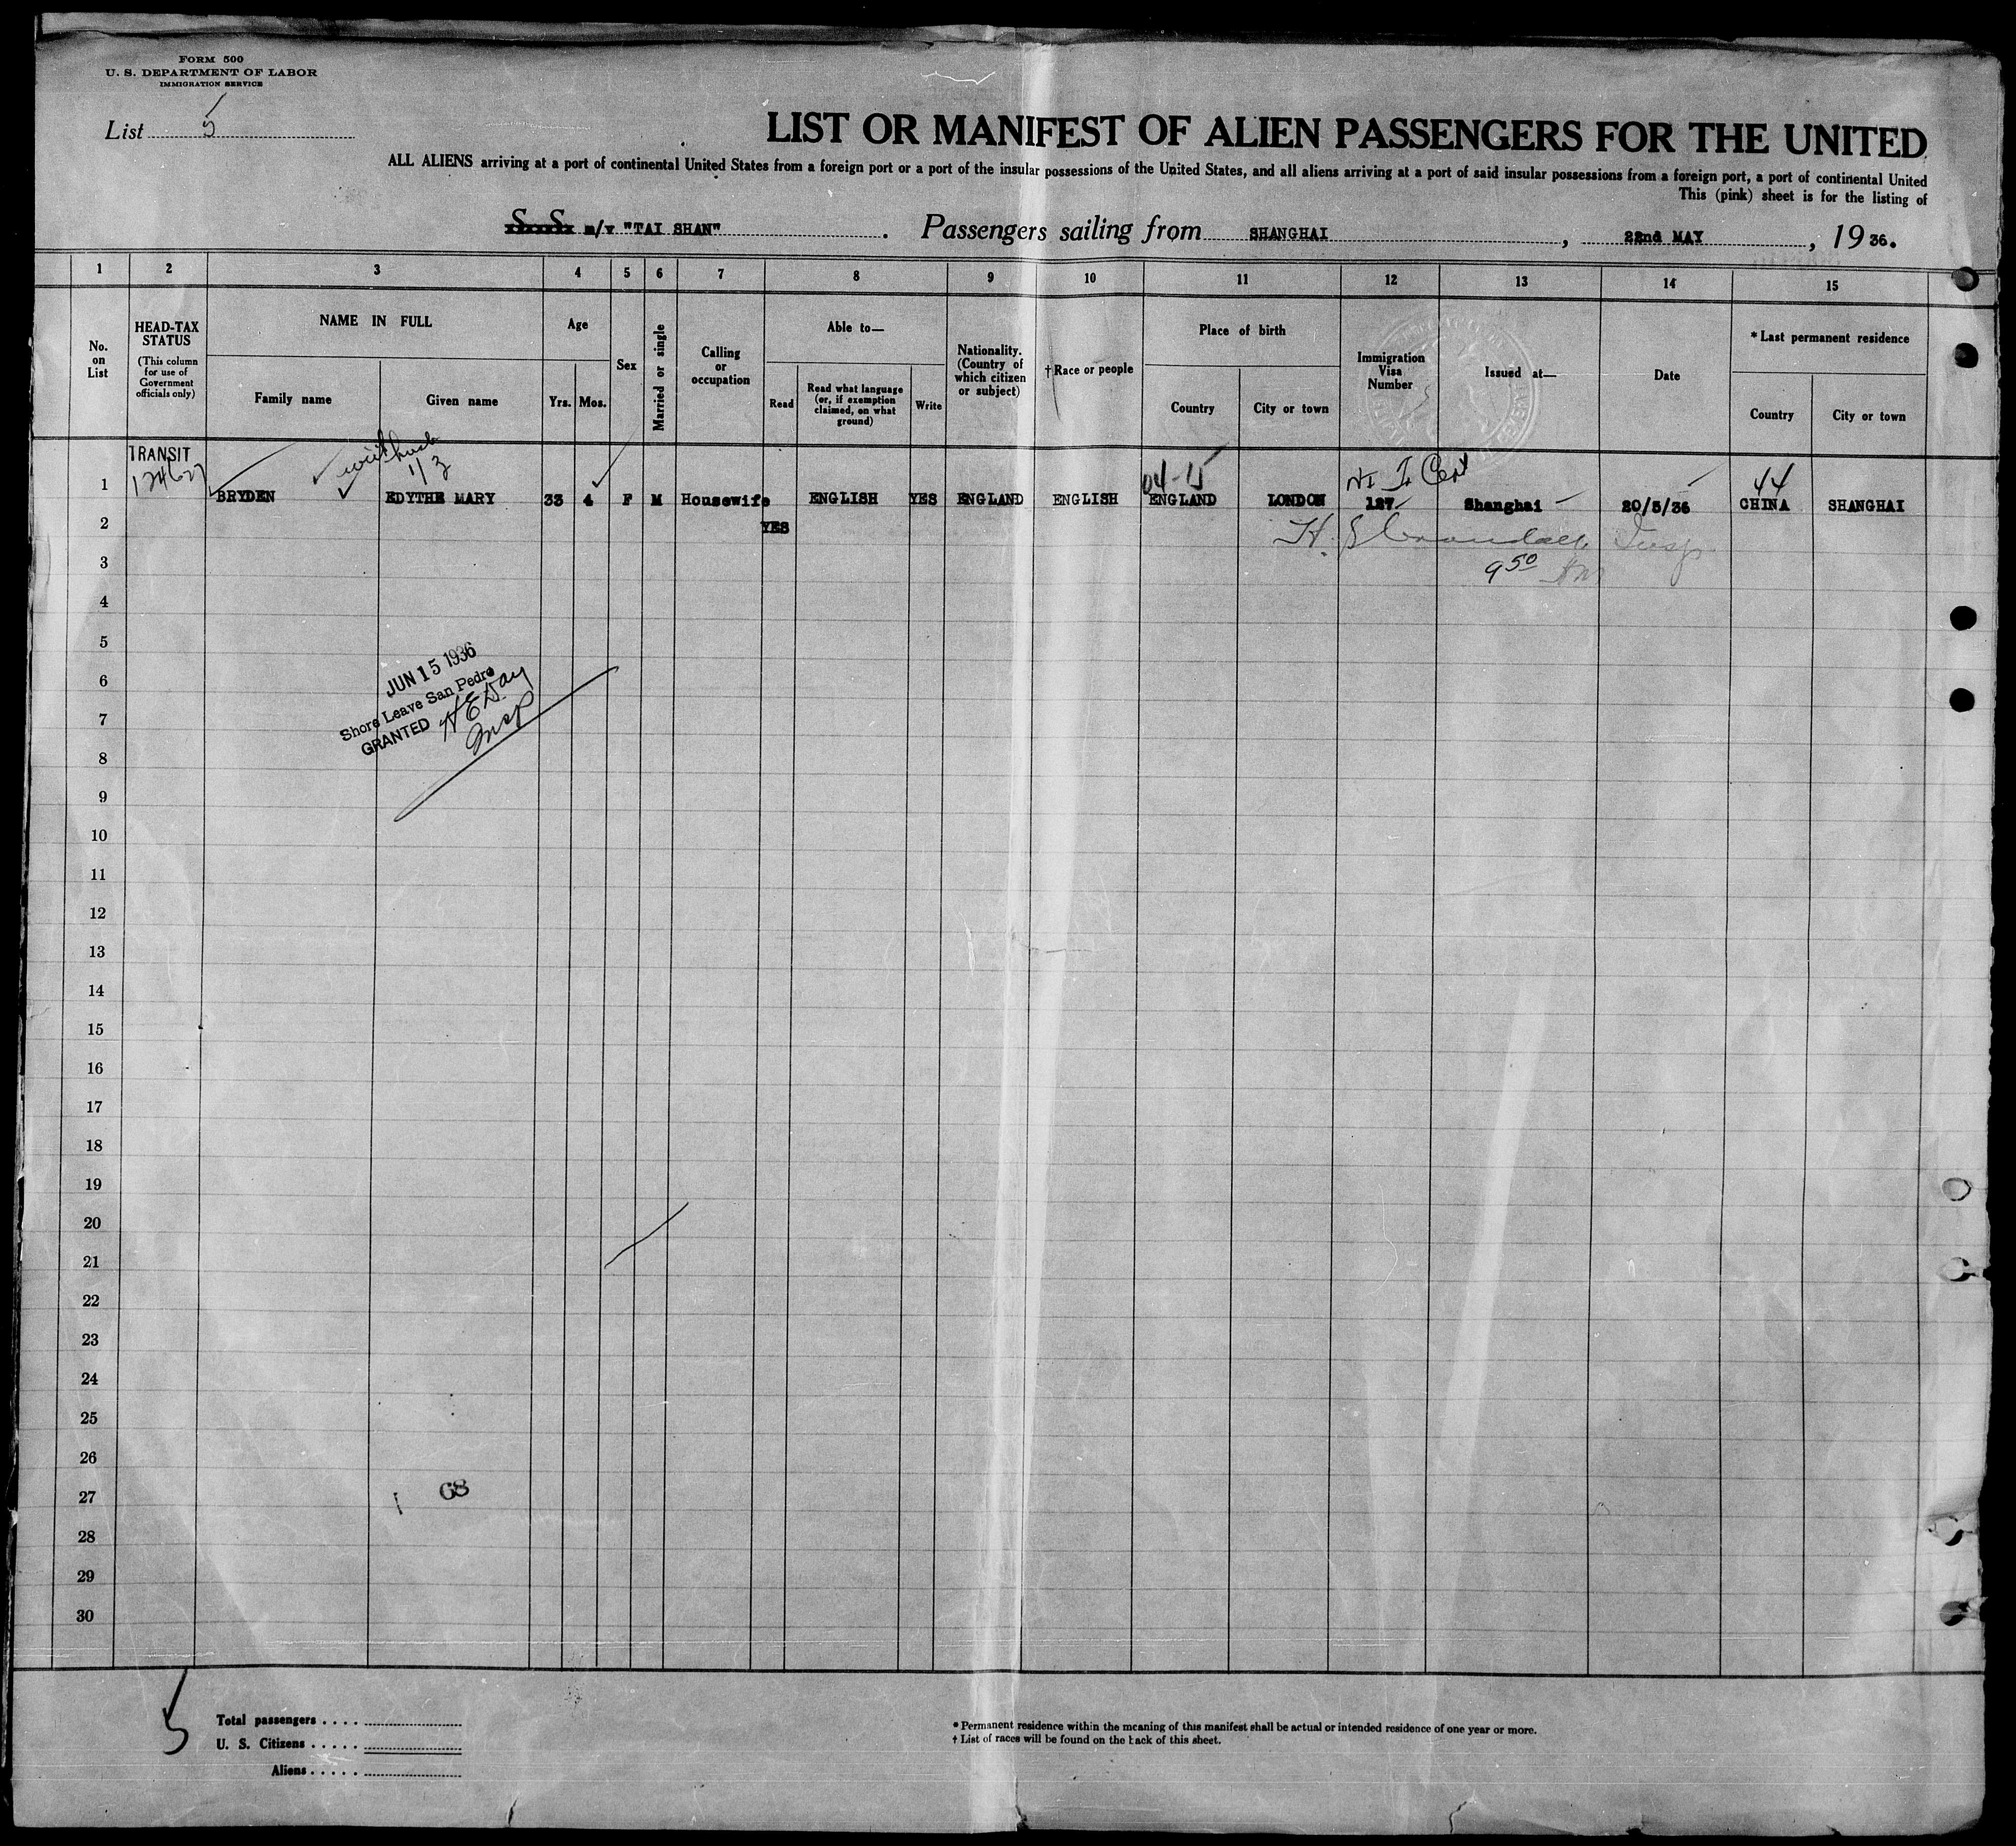 FORM 500
U. S. DEPARTMENT OF LABOR
IMMIGRATION SERVICE
List 5
LIST OR MANIFEST OF ALIEN PASSENGERS FOR THE UNITED
ALL ALIENS arriving at a port of continental United States from a foreign port or a port of the insular possessions of the United States, and all aliens arriving at a port of said insular possessions from a foreign port, a port of continental United
This (pink) sheet is for the listing of
S. S. m/v "TAI SHAN" . Passengers sailing from SHANGHAI , 22nd MAY , 1936.
1 2 3 4 5 6 7 8 9 10 11 12 13 14 15
No. on List
HEAD-TAX STATUS
(This column for use of Government officials only)
NAME IN FULL
Family name
Given name
Age
Yrs. Mos.
Sex
Married or single
Calling or occupation
Able to—
Read
Read what language (or, if exemption claimed, on what ground)
Write
Nationality. (Country of which citizen or subject)
† Race or people
Place of birth
Country
City or town
Immigration Visa Number
Issued at—
Date
* Last permanent residence
Country
City or town
TRANSIT
with husb
1/3
04-15
44
1 BRYDEN EDYTHE MARY 33 4 F M Housewife YES ENGLISH YES ENGLAND ENGLISH ENGLAND LONDON 127 Shanghai 20/5/36 CHINA SHANGHAI
2
Insp
3
9 50 AM
4
5
6
7
8
9
10
11
12
13
14
15
16
17
18
19
20
21
22
23
24
25
26
27
28
29
30
JUN 15 1936
Shore Leave San Pedro
GRANTED
Insp
68
5
Total passengers . . . .
U. S. Citizens . . . . .
Aliens . . . . .
* Permanent residence within the meaning of this manifest shall be actual or intended residence of one year or more.
† List of races will be found on the back of this sheet.